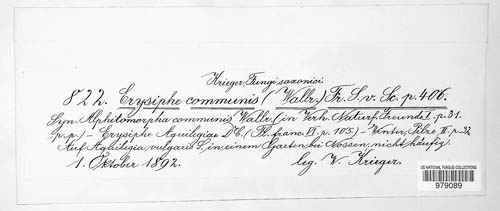 Krieger, Fungi saxonici
822. Erysiphe communis (Wallr.) Fr. S. v. Sc. p. 406.
Syn. Alphitomorpha communis Wallr. (in Verh. Naturf. Freunde I. p. 31.
p. p.) – Erysiphe Aquilegiae DC. (Fl. franc. VI. p. 105.) – Winter, Pilze II. p. 32.
Auf Aquilegia vulgaris L. in einem Garten bei Nossen, nicht häufig.
1. Oktober 1892. leg. W. Krieger.
US NATIONAL FUNGUS COLLECTIONS
979089